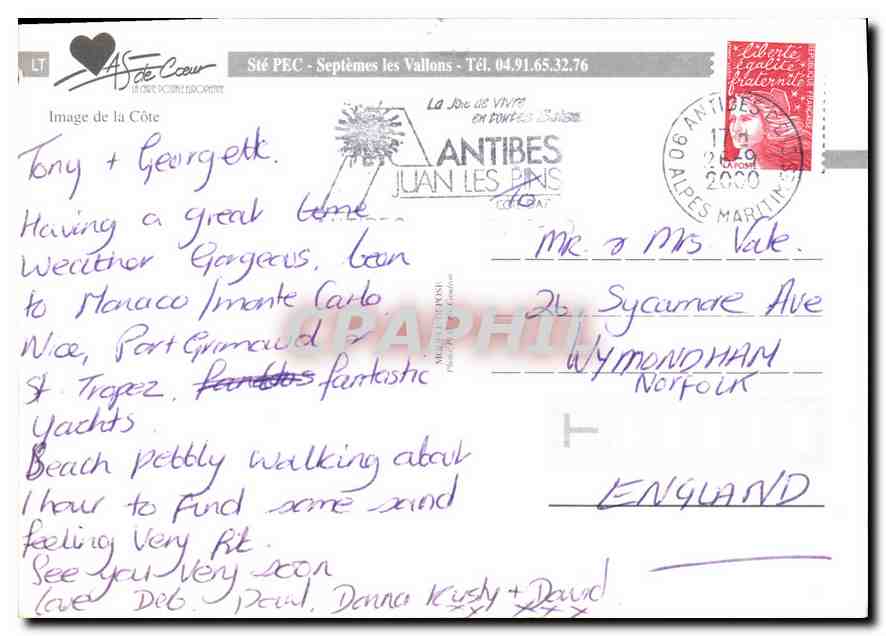 LT
AS de Cœur
LA CARTE POSTALE EUROPEENNE
Sté PEC - Septèmes les Vallons - Tél. 04.91.65.32.76
Image de la Côte
La Joie de Vivre
en toutes Saisons
ANTIBES
JUAN LES PINS
06 ANTIBES
17H
26-9
2000
ALPES MARITIMES
liberté
égalité
fraternité
RÉPUBLIQUE FRANÇAISE
LA POSTE
Tony + Georgette.
Having a great time
Weather Gorgeous, been
to Monaco / Monte Carlo.
Nice, Port Grimaud &
St Tropez, fantastic
yachts.
Beach pebbly walking about
1 hour to find some sand
feeling very fit.
See you very soon
Love Deb, Paul, Donna Kirsty + David
x x x x x
to
Mr. & Mrs Vale.
26 Sycamore Ave
WYMONDHAM
NORFOLK
ENGLAND
MODELE DEPOSE
CPAPHIL